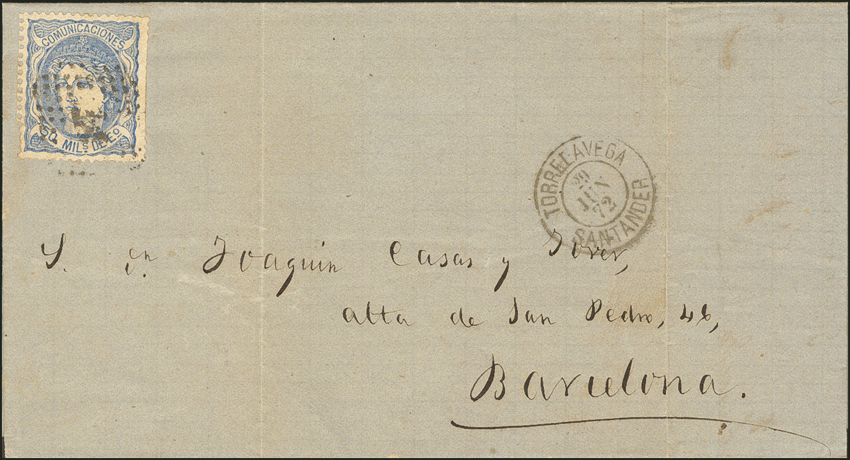 COMUNICACIONES
50 MILS DE Eo
TORRELAVEGA
29
JUN
72
SANTANDER
S. Sn. Joaquin Casas y Jover,
alta de San Pedro, 46,
Barcelona.